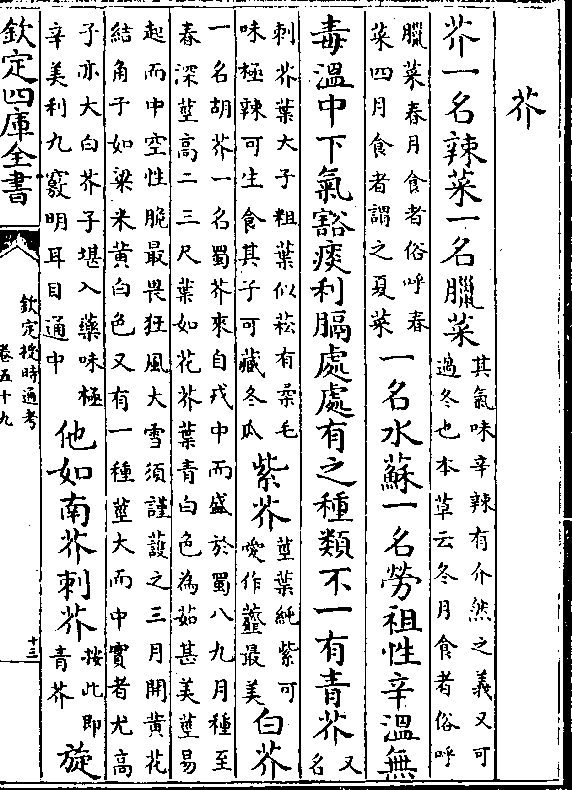 芥
芥一名辣菜一名臘菜其氣味辛辣有介然之義又可過冬也本草云冬月食者俗呼
臘菜春月食者俗呼春菜四月食者謂之夏菜一名水蘇一名勞祖性辛溫無
毒溫中下氣豁痰利膈處處有之種類不一有青芥又名
刺芥葉大子粗葉似菘有柔毛味極辣可生食其子可藏冬瓜紫芥莖葉純紫可愛作虀最美白芥
一名胡芥一名蜀芥來自戎中而盛於蜀八九月種至春深莖高二三尺葉如花芥葉青白色為茹甚美莖易
起而中空性脆最畏狂風大雪須謹護之三月開黃花結角子如粱米黃白色又有一種莖大而中實者尤高
子亦大白芥子堪入藥味極辛美利九竅明耳目通中他如南芥刺芥按此即青芥旋
欽定四庫全書
欽定授時通考
卷五十九
十三